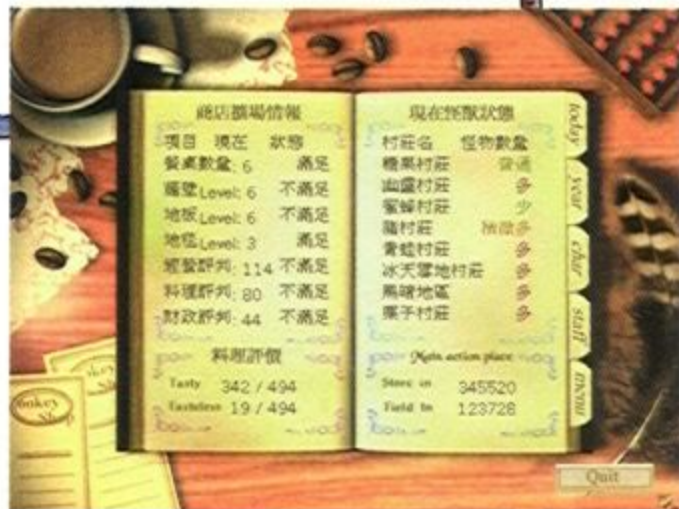 商店擴場情報
項目 現在 狀態
餐桌數量: 6 滿足
牆壁Level: 6 不滿足
地板Level: 6 不滿足
地毯Level: 3 滿足
經營評判: 114 不滿足
料理評判: 80 不滿足
財政評判: 44 不滿足
料理評價
Tasty 342 / 494
Tasteless 19 / 494
現在怪獸狀態
村莊名 怪物數量
糖果村莊 普通
幽靈村莊 多
蜜蜂村莊 少
龍村莊 稍微多
青蛙村莊 多
冰天雪地村莊 多
黑暗地區 多
栗子村莊 多
Main action place
Store in 345520
Field In 123728
today
year
char
staff
menu
Shop
Quit